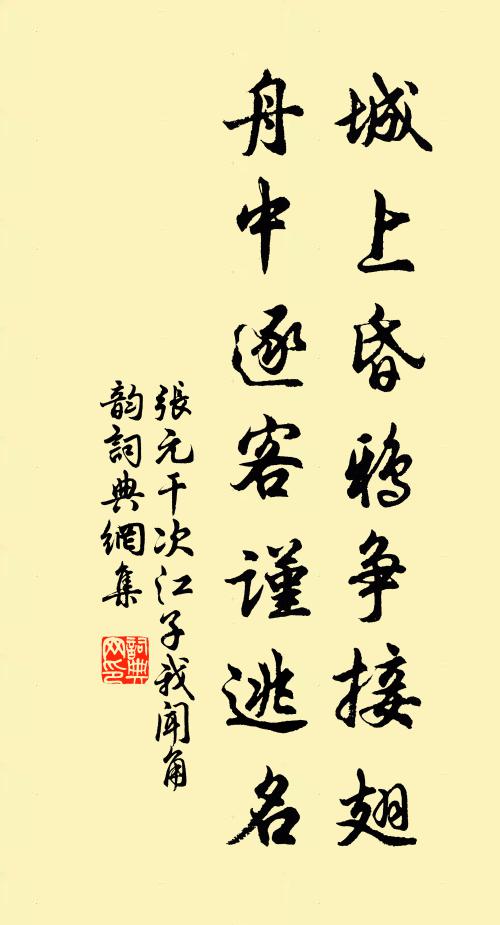 城上昏鴉争接翅
舟中逐客謹逃名
張元干次江子我聞角
韵詞典網集
詞典
网印